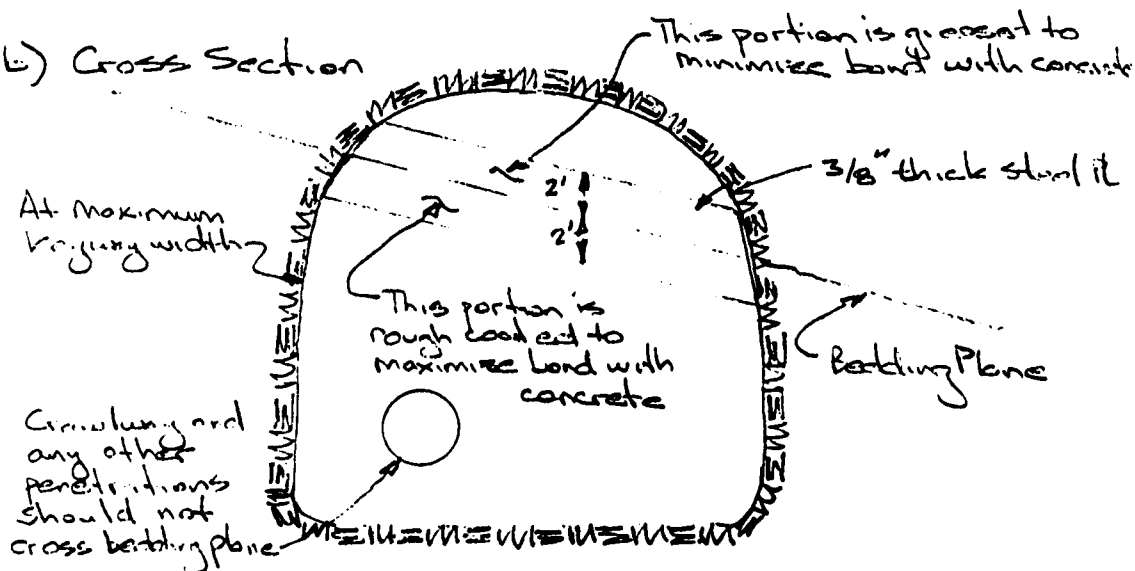 b) Cross Section
This portion is greased to
minimize bond with concrete
3/8" thick steel
2'
2'
At maximum
width
This portion is
rough coated to
maximize bond with
concrete
Bedding Plane
Crawlway and
any other
penetrations
should not
cross bedding plane